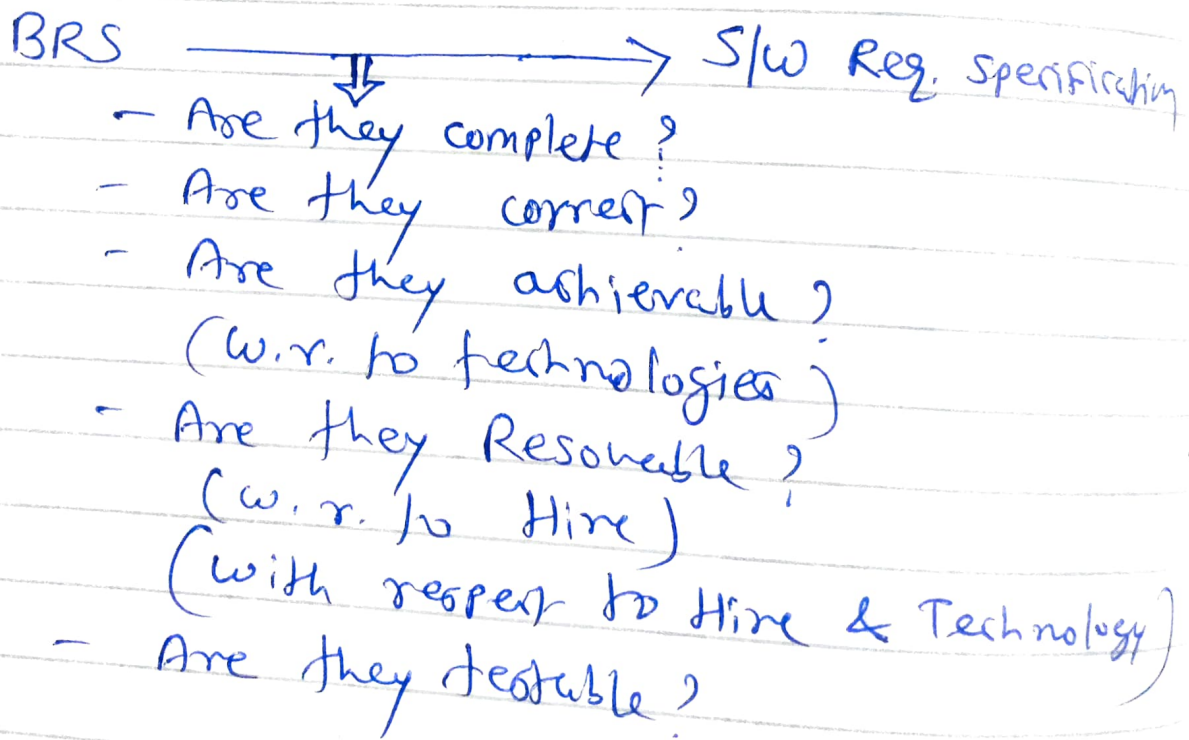 BRS → S/W Req. Specification
- Are they complete?
- Are they correct?
- Are they achievable?
(w.r. to technologies)
- Are they Resoneable?
(w.r. to Hire)
(with respect to Hire & Technology)
- Are they testable?